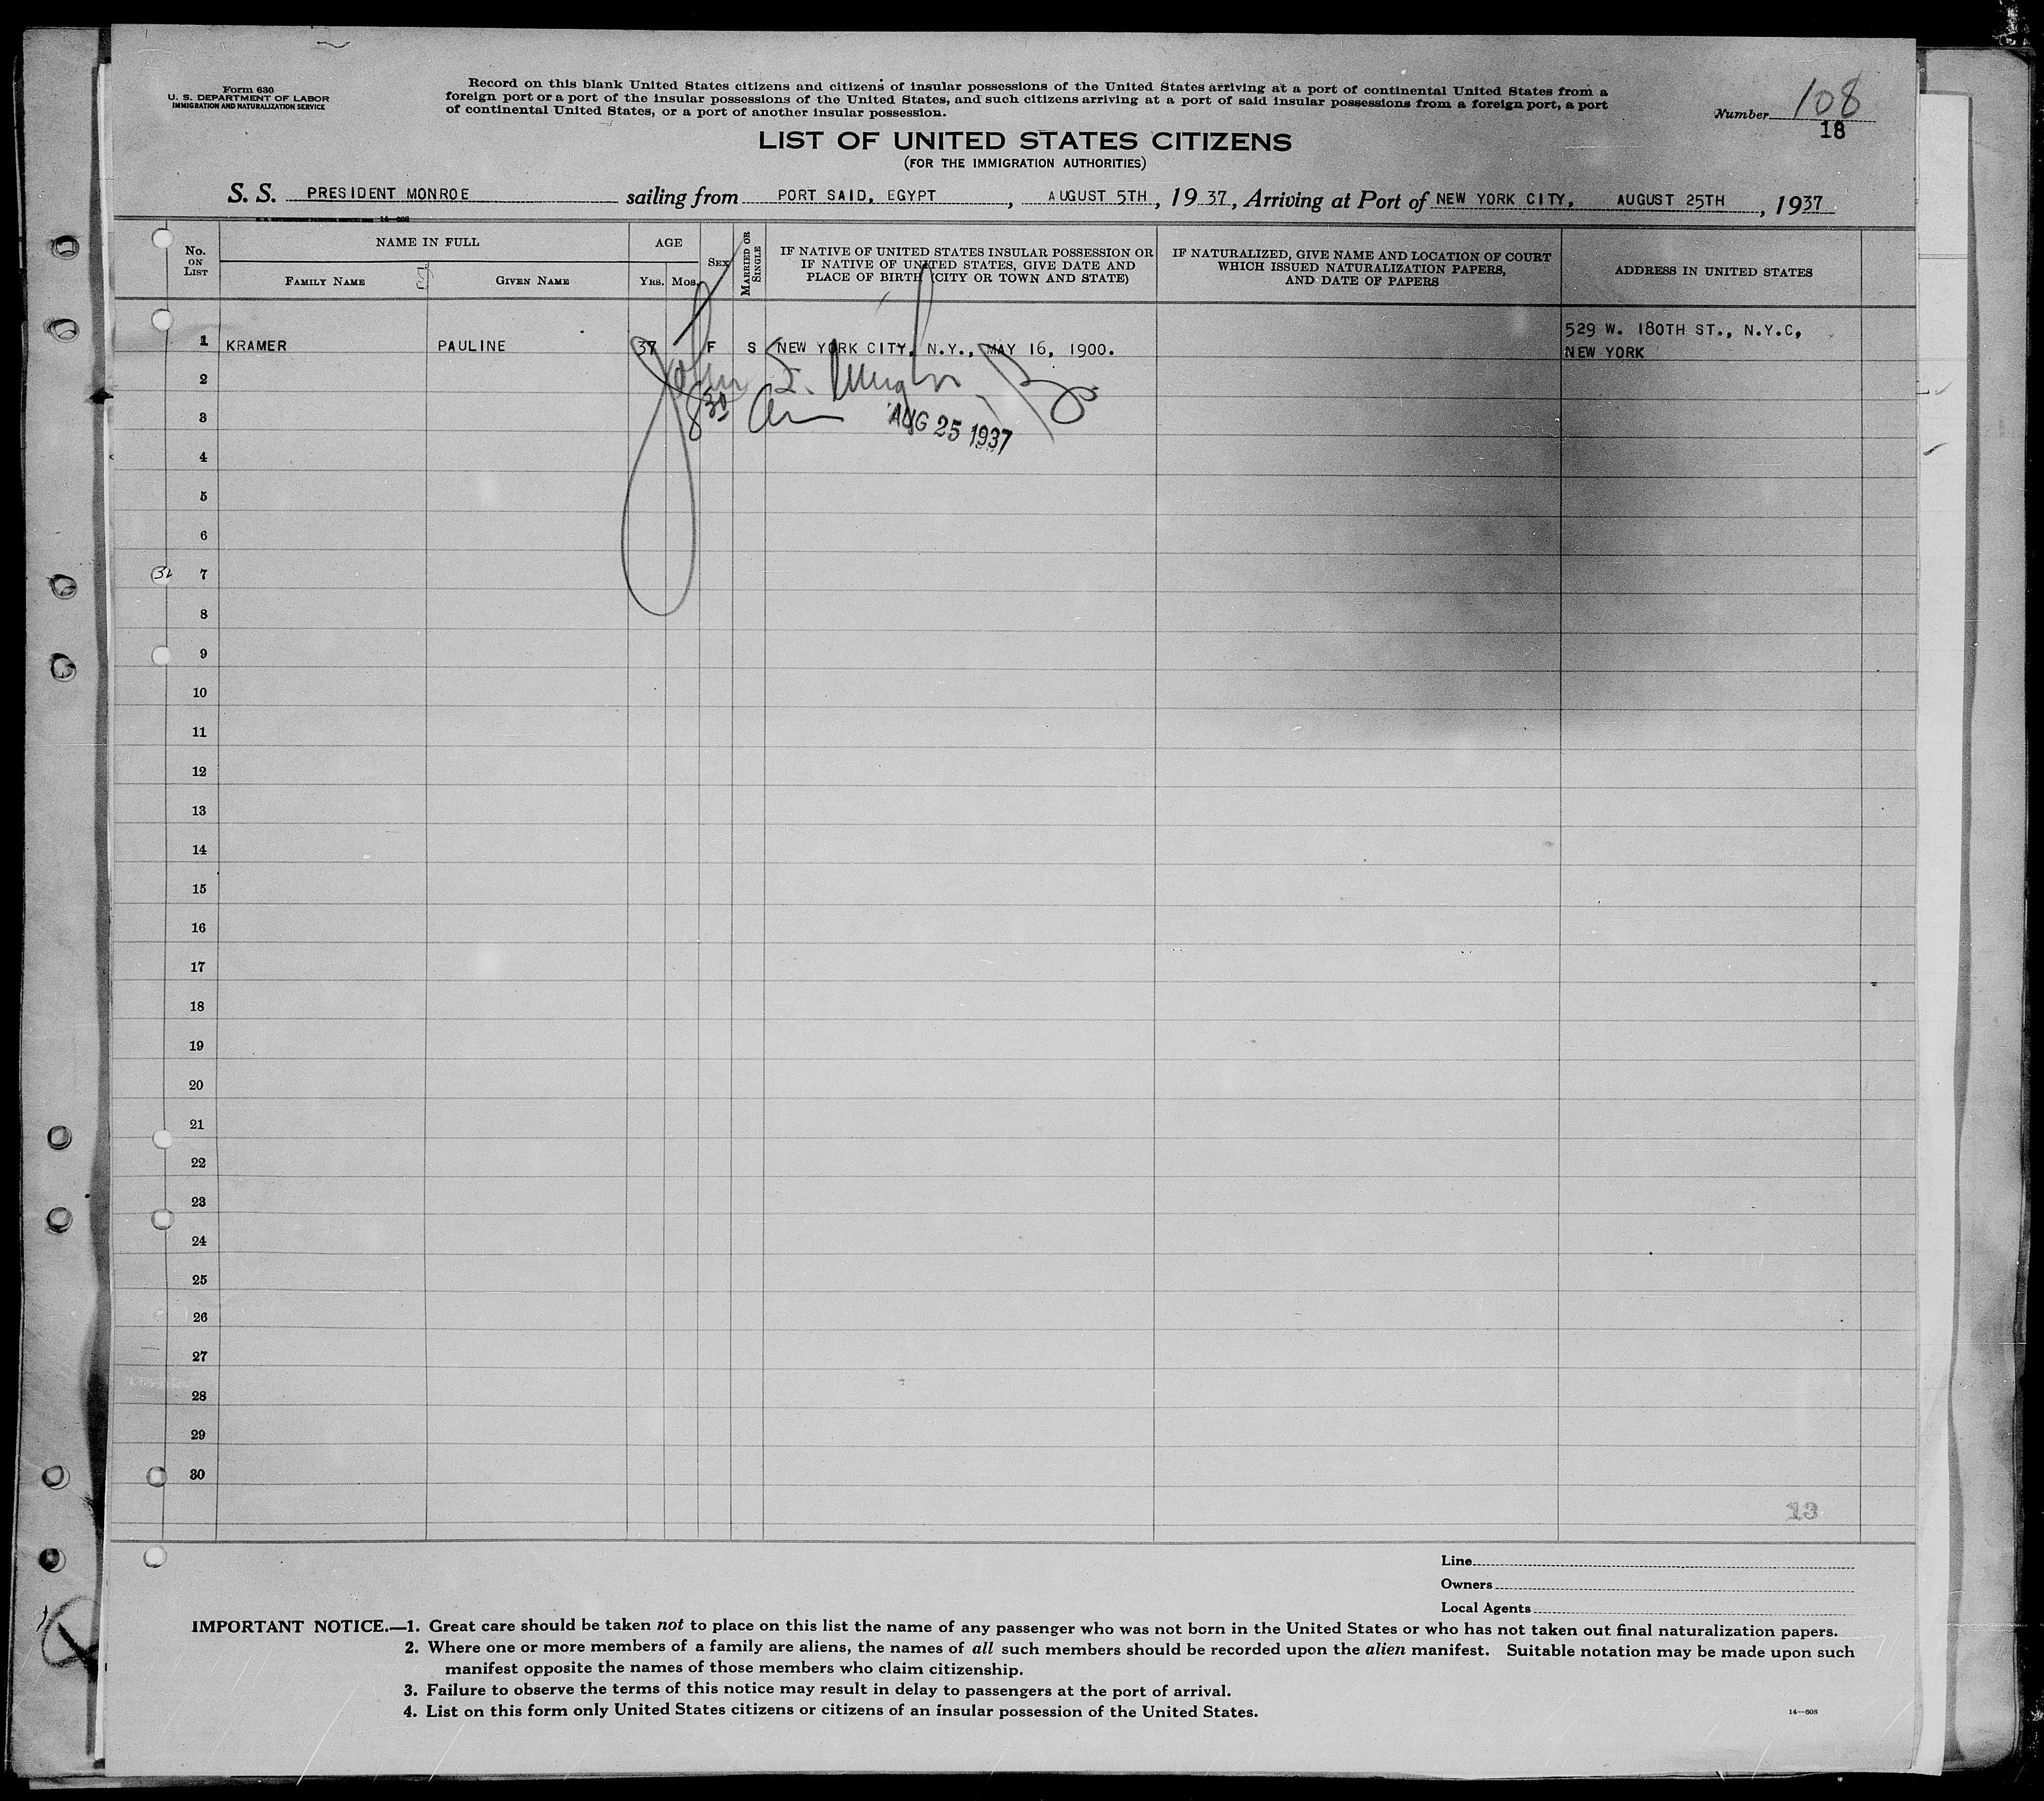 Form 630
U. S. DEPARTMENT OF LABOR
IMMIGRATION AND NATURALIZATION SERVICE
Record on this blank United States citizens and citizens of insular possessions of the United States arriving at a port of continental United States from a
foreign port or a port of the insular possessions of the United States, and such citizens arriving at a port of said insular possessions from a foreign port, a port
of continental United States, or a port of another insular possession.
Number 108
18
LIST OF UNITED STATES CITIZENS
(FOR THE IMMIGRATION AUTHORITIES)
S. S. PRESIDENT MONROE sailing from PORT SAID, EGYPT, AUGUST 5TH, 1937, Arriving at Port of NEW YORK CITY, AUGUST 25TH, 1937
14—608
No. ON LIST
NAME IN FULL
FAMILY NAME
GIVEN NAME
AGE
YRS. MOS.
SEX
MARRIED OR SINGLE
IF NATIVE OF UNITED STATES INSULAR POSSESSION OR
IF NATIVE OF UNITED STATES, GIVE DATE AND
PLACE OF BIRTH (CITY OR TOWN AND STATE)
IF NATURALIZED, GIVE NAME AND LOCATION OF COURT
WHICH ISSUED NATURALIZATION PAPERS,
AND DATE OF PAPERS
ADDRESS IN UNITED STATES
529 W. 180TH ST., N.Y.C,
1 KRAMER PAULINE 37 F S NEW YORK CITY, N.Y., MAY 16, 1900. NEW YORK
2
John
3
8 30 am AUG 25 1937
4
5
6
7
8
9
10
11
12
13
14
15
16
17
18
19
20
21
22
23
24
25
26
27
28
29
30
13
Line
Owners
Local Agents
IMPORTANT NOTICE.—1. Great care should be taken not to place on this list the name of any passenger who was not born in the United States or who has not taken out final naturalization papers.
2. Where one or more members of a family are aliens, the names of all such members should be recorded upon the alien manifest. Suitable notation may be made upon such
manifest opposite the names of those members who claim citizenship.
3. Failure to observe the terms of this notice may result in delay to passengers at the port of arrival.
4. List on this form only United States citizens or citizens of an insular possession of the United States.
14—608